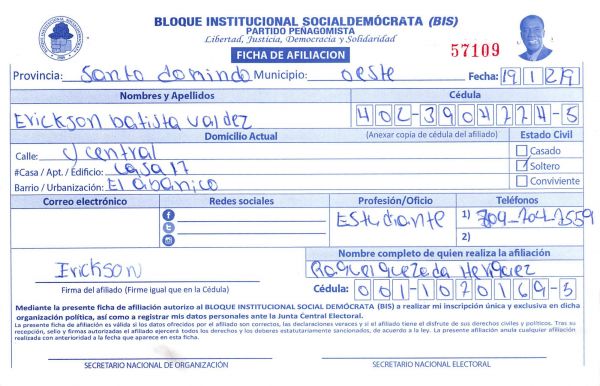 BLOQUE INSTITUCIONAL SOCIALDEMÓCRATA (BIS)
PARTIDO PEÑAGOMISTA
Libertad, Justicia, Democracia y Solidaridad
FICHA DE AFILIACION
57109
Provincia: Santo domindo Municipio: oeste Fecha: 19 12 19
Nombres y Apellidos Cédula
Erickson batista valdez 402-3904774-5
Domicilio Actual (Anexar copia de cédula del afiliado) Estado Civil
Calle: y central Casado
#Casa / Apt. / Edificio: casa 17 Soltero
Barrio / Urbanización: El abanico Conviviente
Correo electrónico Redes sociales Profesión/Oficio Teléfonos
Estudiante 1) 709-704-7559
2)
Nombre completo de quien realiza la afiliación
Erickson Raquel quezada Henriquez
Firma del afiliado (Firme igual que en la Cédula) Cédula: 001-1070169-5
Mediante la presente ficha de afiliación autorizo al BLOQUE INSTITUCIONAL SOCIAL DEMÓCRATA (BIS) a realizar mi inscripción única y exclusiva en dicha
organización política, así como a registrar mis datos personales ante la Junta Central Electoral.
La presente ficha de afiliación es válida si los datos ofrecidos por el afiliado son correctos, las declaraciones veraces y si el afiliado tiene el disfrute de sus derechos civiles y políticos. Tras su
recepción, sello y firmas autorizadas el afiliado ejercerá todos los derechos y los deberes estatutariamente sancionados, de acuerdo a la ley. La presente afiliación anula cualquier afiliación
realizada con anterioridad a la fecha que aparece en esta ficha.
SECRETARIO NACIONAL DE ORGANIZACIÓN SECRETARIO NACIONAL ELECTORAL